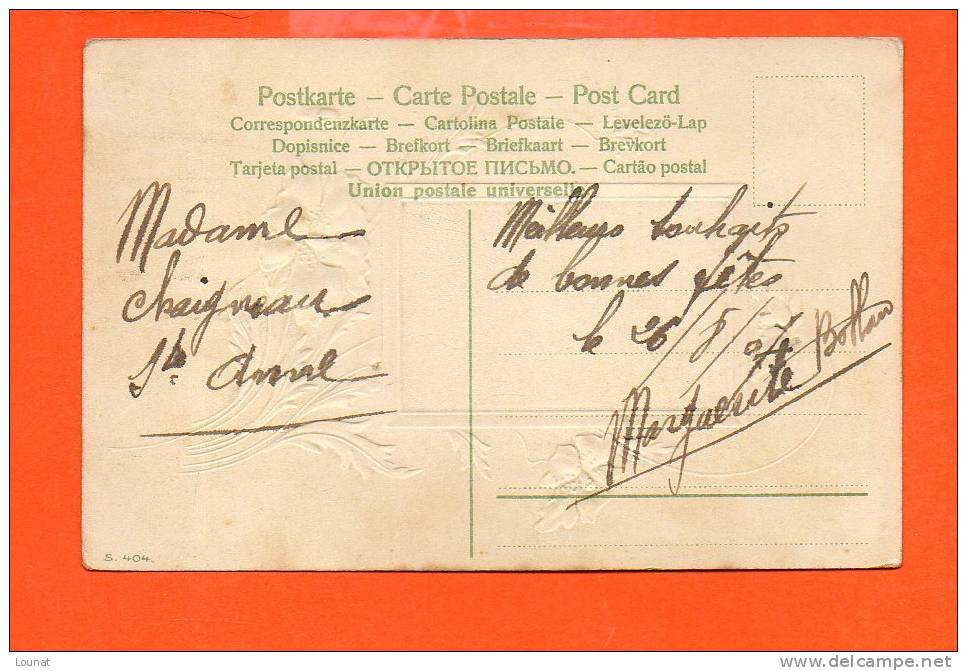 Postkarte — Carte Postale — Post Card
Correspondenzkarte — Cartolina Postale — Levelezö-Lap
Dopisnice — Brefkort — Briefkaart — Brevkort
Tarjeta postal — ОТКРЫТОЕ ПИСЬМО. — Cartão postal
Union postale universelle
Madame
Chaigneau
Ste Anne
Meilleurs souhaits
de bonnes fêtes
le 26/8/07
Marguerite
S. 404.
Lounat
http://www.delcampe.net